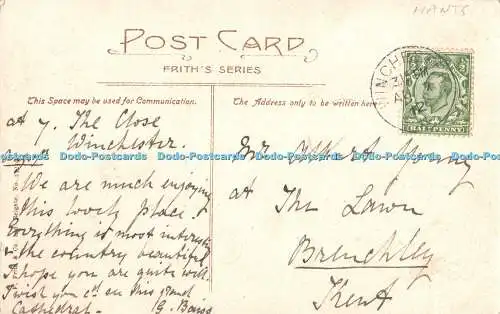 HANTS
POST CARD
FRITH'S SERIES
This Space may be used for Communication.
The Address only to be written here.
WINCH
HALFPENNY
at 7. The Close
Winchester.
We are much enjoying
this lovely place. &
Everything is most interesting
& the country beautiful
I hope you are quite well.
I wish you cd see this grand
Cathedral. G. Baiss
Mr Albert Young
at The Lawn
Brenchley
Kent
Dodo-Postcards Dodo-Postcards Dodo-Postcards Dodo-Postcards Dodo-Postcards
Dodo-Postcards Dodo-Postcards Dodo-Postcards Dodo-Postcards Dodo-Postcards